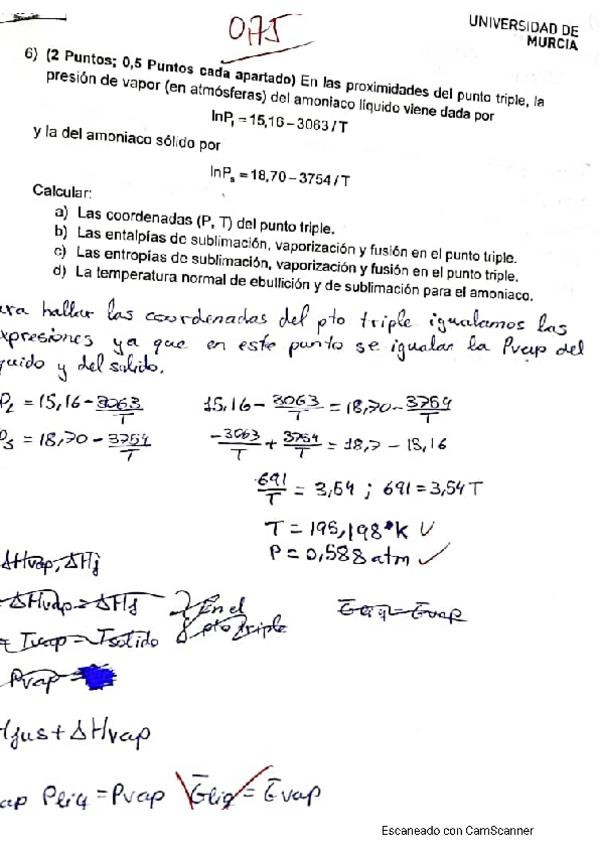 0,75
UNIVERSIDAD DE
MURCIA
6) (2 Puntos; 0,5 Puntos cada apartado) En las proximidades del punto triple, la
presión de vapor (en atmósferas) del amoniaco líquido viene dada por
lnPₗ = 15,16 – 3063 / T
y la del amoniaco sólido por
lnPₛ = 18,70 – 3754 / T
Calcular:
a) Las coordenadas (P, T) del punto triple.
b) Las entalpías de sublimación, vaporización y fusión en el punto triple.
c) Las entropías de sublimación, vaporización y fusión en el punto triple.
d) La temperatura normal de ebullición y de sublimación para el amoniaco.
ara hallar las coordenadas del pto triple igualamos las
xpresiones ya que en este punto se igualan la Pvap del
quido y del sólido.
P_L = 15,16 - 3063/T 15,16 - 3063/T = 18,70 - 3754/T
P_S = 18,70 - 3754/T -3063/T + 3754/T = 18,7 - 15,16
691/T = 3,54 ; 691 = 3,54 T
T = 195,198 °K
P = 0,588 atm
ΔHvap, ΔHf
ΔHvap = ΔHf } En el Gliq = Gvap
= Tvap = Tsólido pto triple
Pvap =
Hfus + ΔHvap
ap Pliq = Pvap G̅liq = G̅vap
Escaneado con CamScanner